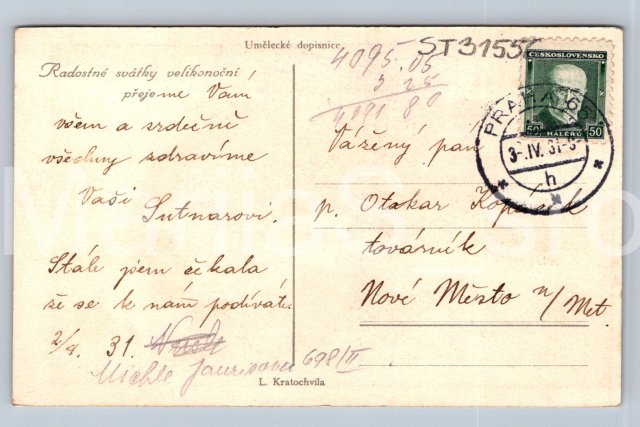 Umělecké dopisnice
ST3155
4095.05
5 25
4091 80
ČESKOSLOVENSKO
50 HALÉŘŮ 50
PRAHA 65
3.IV.31-
h
Radostné svátky velikonoční
přejeme Vám
všem a srdečně
všechny zdravíme
Vaši
Sutnarovi.
Stále jsem čekala
že se k nám podíváte.
2/4. 31.
Michle 698/II
Vážený pan
p. Otakar
továrník
Nové Město n/Met.
L. Kratochvíla